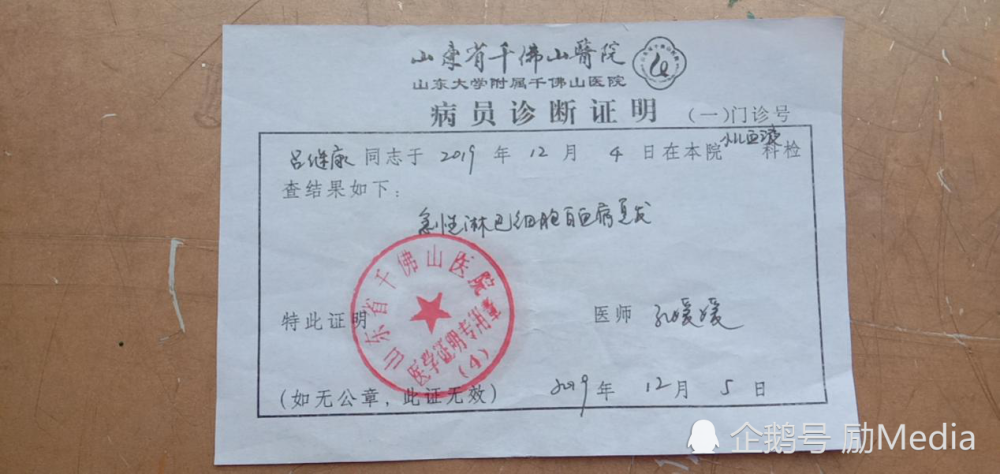 山东省千佛山醫院
山东大学附属千佛山医院
病员诊断证明 （一）门诊号
吕继康 同志于 2019 年 12 月 4 日在本院 小儿血液 科检
查结果如下：
急性淋巴细胞白血病复发
山东省千佛山医院
医学证明专用章
（4）
特此证明 医师 孔媛媛
（如无公章，此证无效） 2019 年 12 月 5 日
企鹅号 励Media